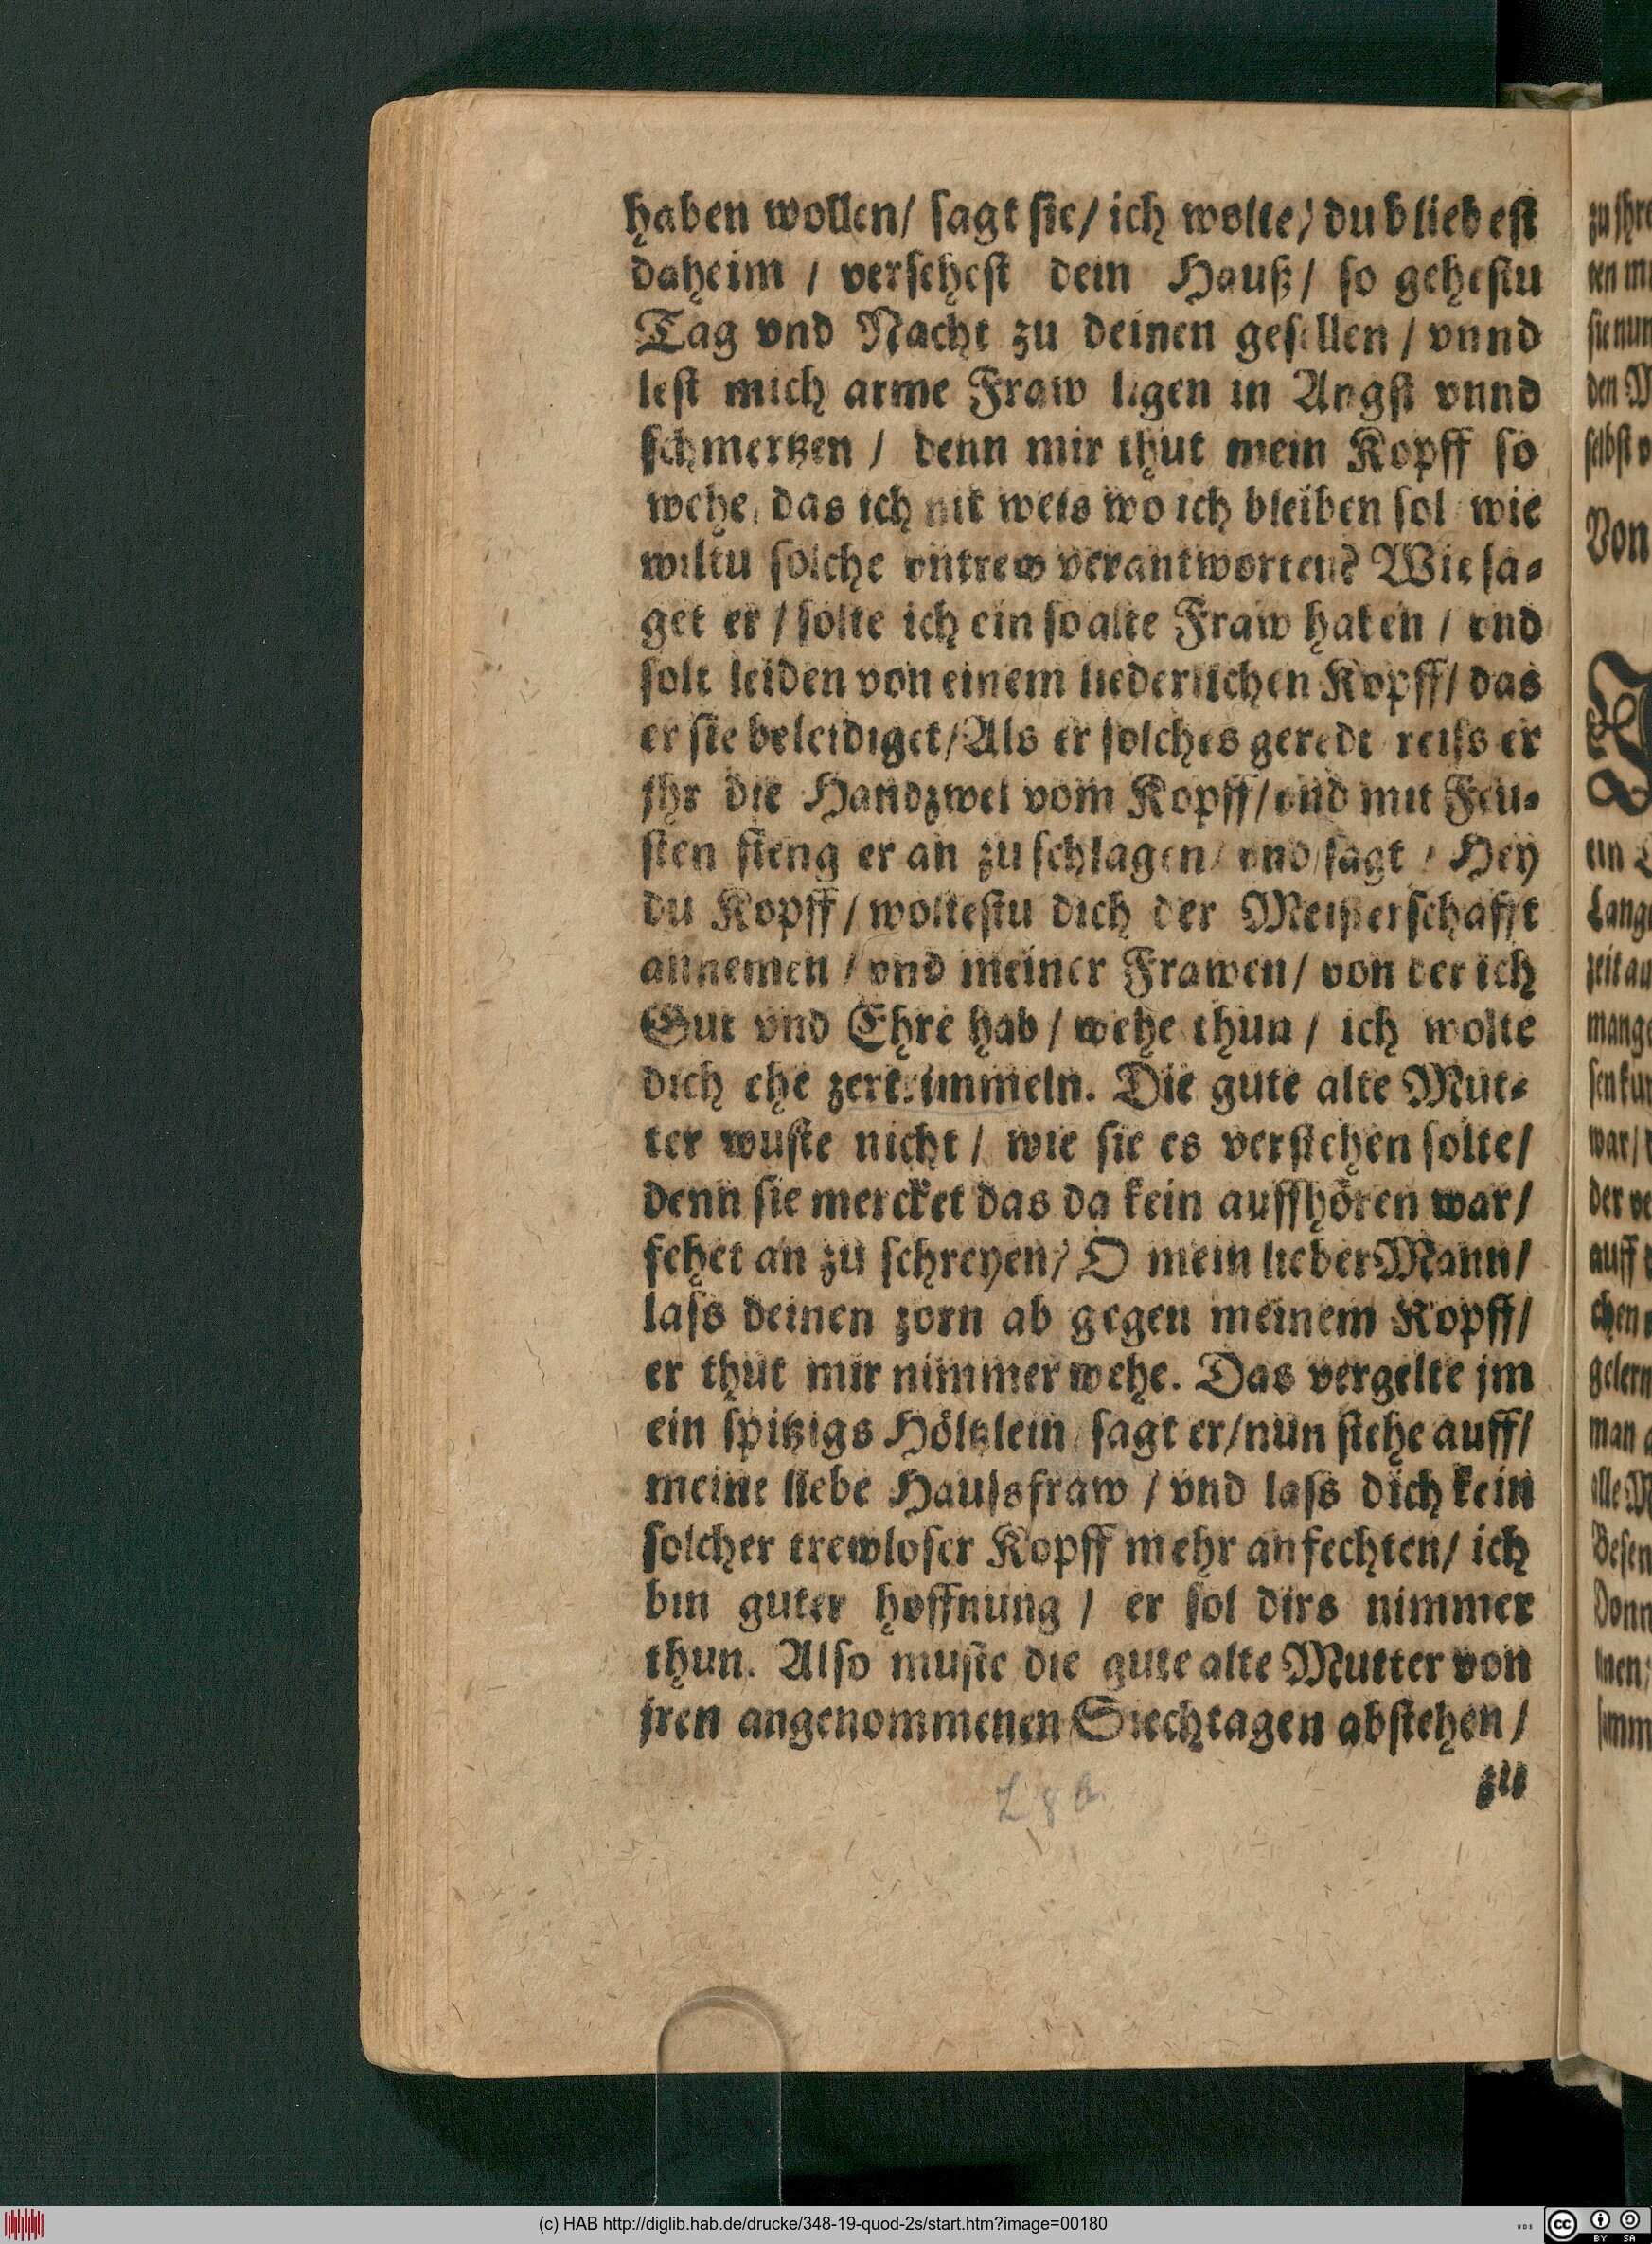 haben wollen/ sagt sie/ ich wolte/ du bliebest
daheim / versehest dein Hauß/ so gehestu
Tag vnd Nacht zu deinen gesellen / vnnd
lest mich arme Fraw ligen in Angst vnnd
schmertzen / denn mir thut mein Kopff so
wehe/ das ich nit weis wo ich bleiben sol/ wie
wiltu solche vntrew verantworten? Wie sa-
get er / solte ich ein so alte Fraw haben / vnd
solt leiden von einem liederlichen Kopff/ das
er sie beleidiget/ Als er solches geredt/ reiss er
jhr die Handzwel vom Kopff/ vnd mit Feu-
sten fieng er an zu schlagen/ vnd sagt / Hey
du Kopff/ woltestu dich der Meisterschafft
annemen / vnd meiner Frawen/ von der ich
Gut vnd Ehre hab / wehe thun / ich wolte
dich ehe zertrimmeln. Die gute alte Mut-
ter wuste nicht / wie sie es verstehen solte/
denn sie mercket das da kein auffhören war/
fehet an zu schreyen/ O mein lieber Mann/
lass deinen zorn ab gegen meinem Kopff/
er thut mir nimmer wehe. Das vergelte jm
ein spitzigs Höltzlein/ sagt er/ nun stehe auff/
meine liebe Haussfraw / vnd lass dich kein
solcher trewloser Kopff mehr anfechten/ ich
bin guter hoffnung / er sol dirs nimmer
thun. Also muste die gute alte Mutter von
jren angenommenen Siechtagen abstehen /
zu
L 8 b
Von
(c) HAB http://diglib.hab.de/drucke/348-19-quod-2s/start.htm?image=00180